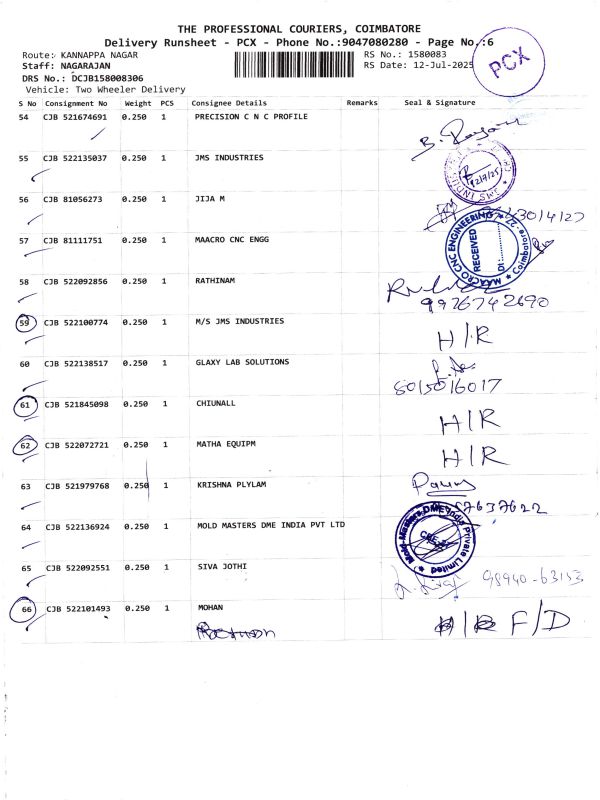 THE PROFESSIONAL COURIERS, COIMBATORE
Delivery Runsheet - PCX - Phone No.:9047080280 - Page No.:6
Route: KANNAPPA NAGAR
RS No.: 1580083
PCX
Staff: NAGARAJAN
RS Date: 12-Jul-2025
DRS No.: DCJB158008306
Vehicle: Two Wheeler Delivery
S No Consignment No Weight PCS Consignee Details Remarks Seal & Signature
54 CJB 521674691 0.250 1 PRECISION C N C PROFILE
55 CJB 522135037 0.250 1 JMS INDUSTRIES
12/7/25
56 CJB 81056273 0.250 1 JIJA M
57 CJB 81111751 0.250 1 MAACRO CNC ENGG
MAACRO CNC ENGINEERING
RECEIVED
Dt:
Coimbatore
58 CJB 522092856 0.250 1 RATHINAM
9976742690
59 CJB 522100774 0.250 1 M/S JMS INDUSTRIES
H/R
60 CJB 522138517 0.250 1 GLAXY LAB SOLUTIONS
8015016017
61 CJB 521845098 0.250 1 CHIUNALL
H/R
62 CJB 522072721 0.250 1 MATHA EQUIPM
H/R
63 CJB 521979768 0.250 1 KRISHNA PLYLAM
64 CJB 522136924 0.250 1 MOLD MASTERS DME INDIA PVT LTD
Mold-Masters DME India Private Limited
65 CJB 522092551 0.250 1 SIVA JOTHI
98940-63153
66 CJB 522101493 0.250 1 MOHAN
F/D